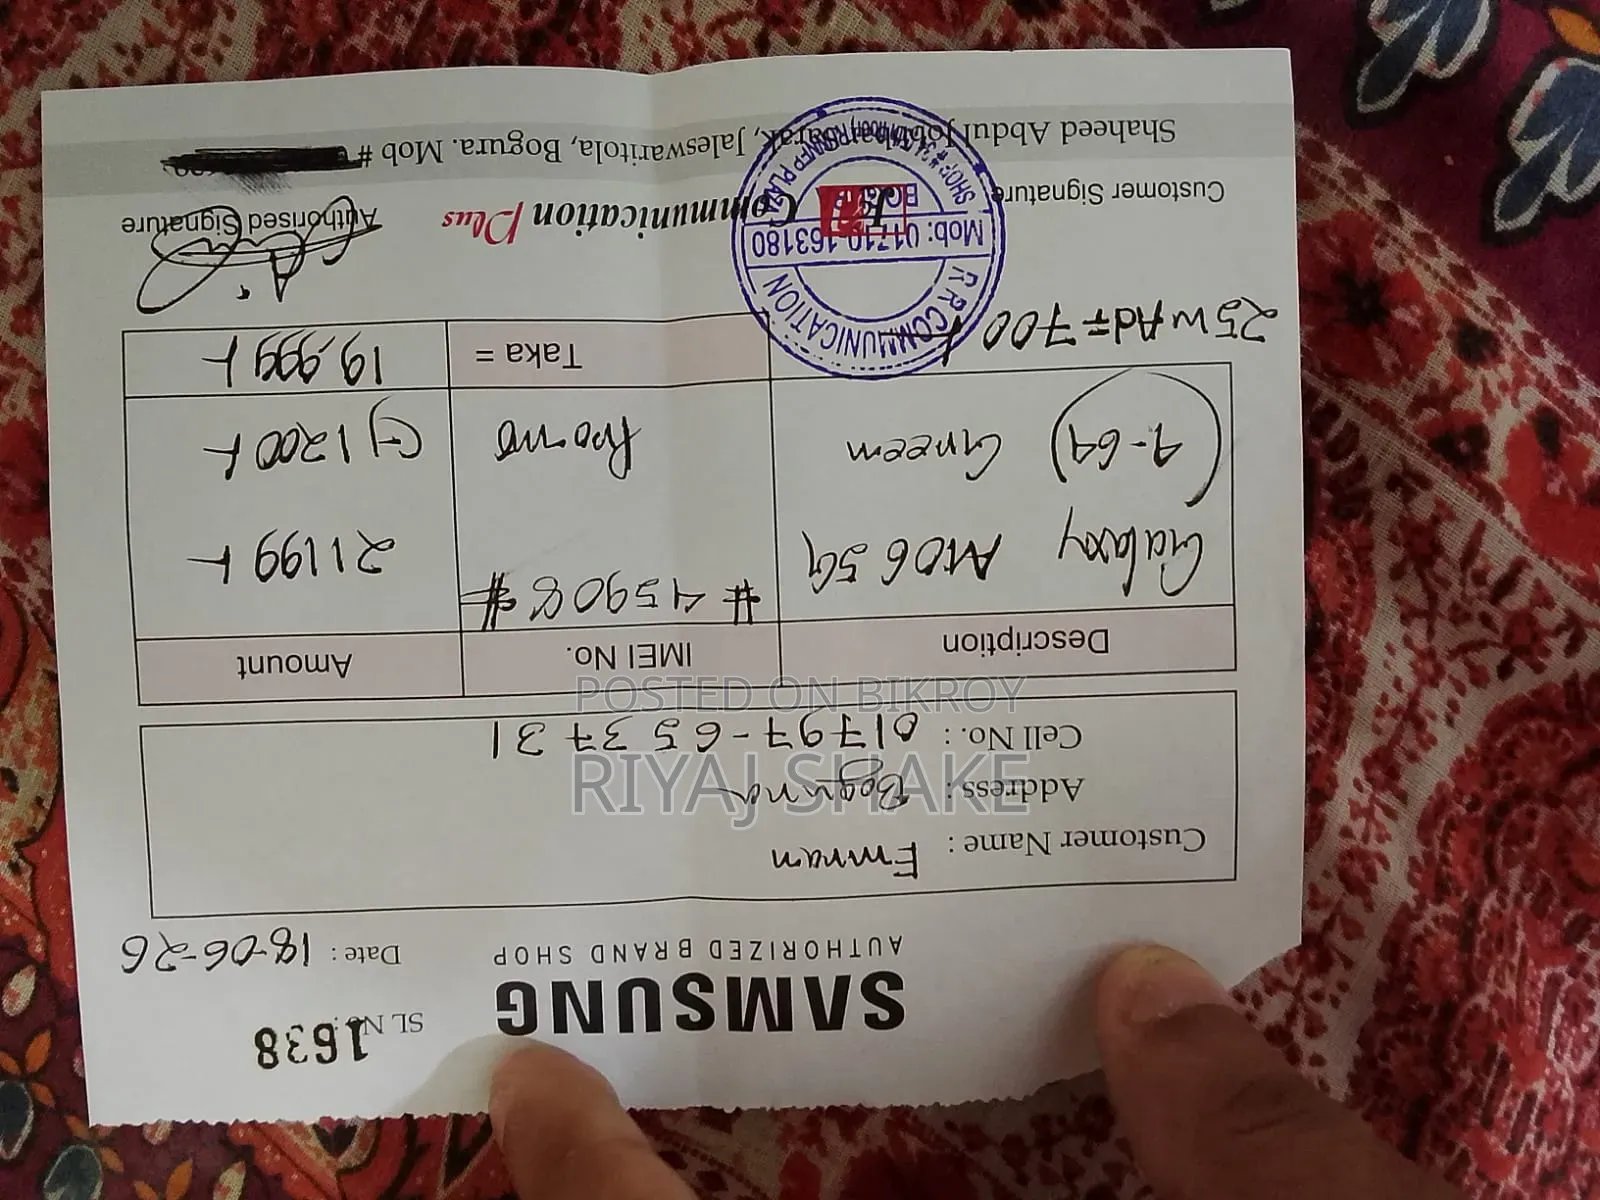 SL No: 1638
SAMSUNG
AUTHORIZED BRAND SHOP
Date : 18-06-26
Customer Name : Emran
Address : Bogura
Cell No. : 01797-653731
Description IMEI No. Amount
Galaxy A06 5G #45908# 21199/-
(4-64) Green Promo (-) 1200/-
Taka = 19,999/-
25W Ad = 700/-
R.R COMMUNICATION
Mob: 01710-163180
Customer Signature
Authorised Signature
Communication Plus
Shaheed Abdul Jobbar Sarak, Jaleswaritola, Bogura. Mob #
POSTED ON BIKROY
RIYAJ SHAKE